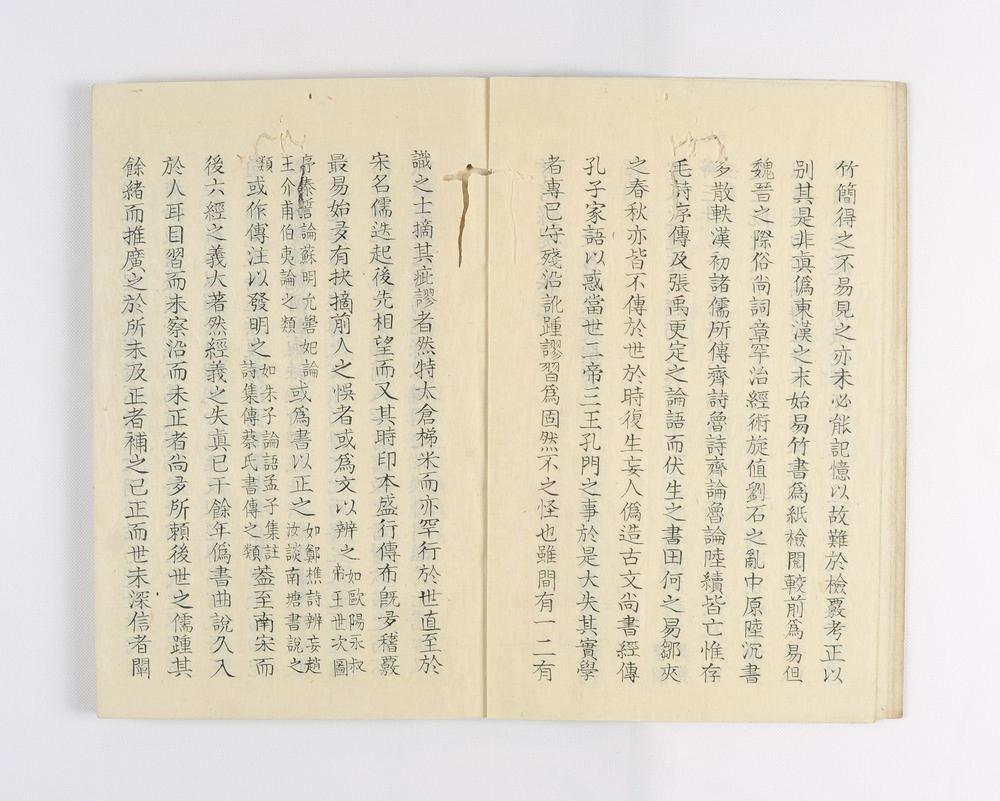 竹簡得之不易見之亦未必能記憶以故難於檢覈考正以
別其是非眞僞東漢之末始易竹書爲紙檢閱較前爲易但
魏晉之際俗尚詞章罕治經術旋值劉石之亂中原陸沉書
多散軼漢初諸儒所傳齊詩魯詩齊論魯論陸續皆亡惟存
毛詩序傳及張禹更定之論語而伏生之書田何之易鄒夾
之春秋亦皆不傳於世於時復生妄人僞造古文尚書經傳
孔子家語以惑當世二帝二王孔門之事於是大失其實學
者專已守殘沿訛踵謬習爲固然不之怪也雖間有一二有
識之士摘其疵謬者然特太倉梯米而亦罕行於世直至於
宋名儒迭起後先相望而又其時印本盛行傳布旣多稽覈
最易始多有抉摘前人之悞者或爲文以辨之如歐陽永叔帝王世次圖
序泰誓論蘇明允嚳妃論王介甫伯夷論之類或爲書以正之如鄭樵詩辨妄趙汝談南塘書說之
類或作傳注以發明之如朱子論語孟子集註詩集傳蔡氏書傳之類蓋至南宋而
後六經之義大著然經義之失眞已千餘年僞書曲說久入
於人耳目習而未察沿而未正者尚多所賴後世之儒踵其
餘緒而推廣之於所未及正者補之已正而世未深信者闡